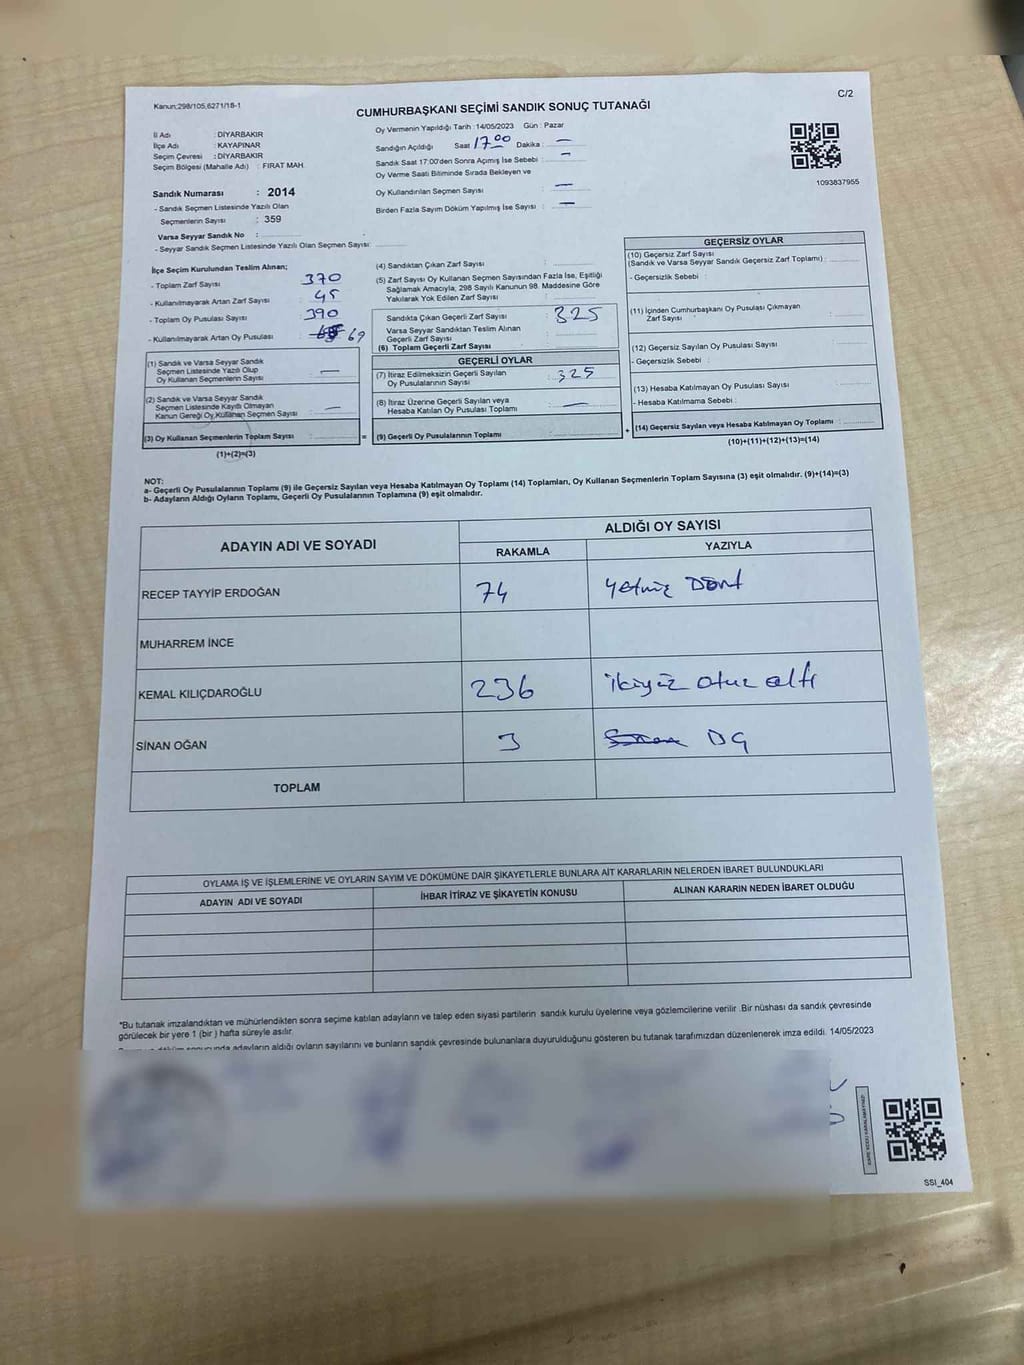 Kanun;298/105,6271/18-1
C/2
CUMHURBAŞKANI SEÇİMİ SANDIK SONUÇ TUTANAĞI
İl Adı : DİYARBAKIR
İlçe Adı : KAYAPINAR
Seçim Çevresi : DİYARBAKIR
Seçim Bölgesi (Mahalle Adı) : FIRAT MAH.
Sandık Numarası : 2014
- Sandık Seçmen Listesinde Yazılı Olan
Seçmenlerin Sayısı : 359
Varsa Seyyar Sandık No :
- Seyyar Sandık Seçmen Listesinde Yazılı Olan Seçmen Sayısı:
Oy Vermenin Yapıldığı Tarih : 14/05/2023 Gün : Pazar
Sandığın Açıldığı Saat 17:00 Dakika : —
Sandık Saat 17:00'den Sonra Açımış İse Sebebi : —
Oy Verme Saati Bitiminde Sırada Bekleyen ve
Oy Kullandırılan Seçmen Sayısı : —
Birden Fazla Sayım Döküm Yapılmış İse Sayısı : —
1093837955
İlçe Seçim Kurulundan Teslim Alınan;
- Toplam Zarf Sayısı : 370
- Kullanılmayarak Artan Zarf Sayısı : 45
- Toplam Oy Pusulası Sayısı : 390
- Kullanılmayarak Artan Oy Pusulası : 69
(1) Sandık ve Varsa Seyyar Sandık
Seçmen Listesinde Yazılı Olup
Oy Kullanan Seçmenlerin Sayısı : —
(2) Sandık ve Varsa Seyyar Sandık
Seçmen Listesinde Kayıtlı Olmayan
Kanun Gereği Oy Kullanan Seçmen Sayısı : —
(3) Oy Kullanan Seçmenlerin Toplam Sayısı :
(1)+(2)=(3)
(4) Sandıktan Çıkan Zarf Sayısı :
(5) Zarf Sayısı Oy Kullanan Seçmen Sayısından Fazla İse, Eşitliği
Sağlamak Amacıyla, 298 Sayılı Kanunun 98. Maddesine Göre
Yakılarak Yok Edilen Zarf Sayısı :
Sandıkta Çıkan Geçerli Zarf Sayısı : 325
Varsa Seyyar Sandıktan Teslim Alınan
Geçerli Zarf Sayısı :
(6) Toplam Geçerli Zarf Sayısı :
GEÇERLİ OYLAR
(7) İtiraz Edilmeksizin Geçerli Sayılan
Oy Pusulalarının Sayısı : 325
(8) İtiraz Üzerine Geçerli Sayılan veya
Hesaba Katılan Oy Pusulası Toplamı : —
= (9) Geçerli Oy Pusulalarının Toplamı :
GEÇERSİZ OYLAR
(10) Geçersiz Zarf Sayısı
(Sandık ve Varsa Seyyar Sandık Geçersiz Zarf Toplamı) :
- Geçersizlik Sebebi :
(11) İçinden Cumhurbaşkanı Oy Pusulası Çıkmayan
Zarf Sayısı :
(12) Geçersiz Sayılan Oy Pusulası Sayısı :
- Geçersizlik Sebebi :
(13) Hesaba Katılmayan Oy Pusulası Sayısı :
- Hesaba Katılmama Sebebi :
+ (14) Geçersiz Sayılan veya Hesaba Katılmayan Oy Toplamı :
(10)+(11)+(12)+(13)=(14)
NOT:
a- Geçerli Oy Pusulalarının Toplamı (9) ile Geçersiz Sayılan veya Hesaba Katılmayan Oy Toplamı (14) Toplamları, Oy Kullanan Seçmenlerin Toplam Sayısına (3) eşit olmalıdır. (9)+(14)=(3)
b- Adayların Aldığı Oyların Toplamı, Geçerli Oy Pusulalarının Toplamına (9) eşit olmalıdır.
ADAYIN ADI VE SOYADI ALDIĞI OY SAYISI
RAKAMLA YAZIYLA
RECEP TAYYİP ERDOĞAN 74 Yetmiş Dört
MUHARREM İNCE
KEMAL KILIÇDAROĞLU 236 ikiyüz otuz altı
SİNAN OĞAN 3
TOPLAM
OYLAMA İŞ VE İŞLEMLERİNE VE OYLARIN SAYIM VE DÖKÜMÜNE DAİR ŞİKAYETLERLE BUNLARA AİT KARARLARIN NELERDEN İBARET BULUNDUKLARI
ADAYIN ADI VE SOYADI İHBAR İTİRAZ VE ŞİKAYETİN KONUSU ALINAN KARARIN NEDEN İBARET OLDUĞU
*Bu tutanak imzalandıktan ve mühürlendikten sonra seçime katılan adayların ve talep eden siyasi partilerin sandık kurulu üyelerine veya gözlemcilerine verilir .Bir nüshası da sandık çevresinde
görülecek bir yere 1 (bir ) hafta süreyle asılır.
adayların aldığı oyların sayılarını ve bunların sandık çevresinde bulunanlara duyurulduğunu gösteren bu tutanak tarafımızdan düzenlenerek imza edildi. 14/05/2023
SSI_404